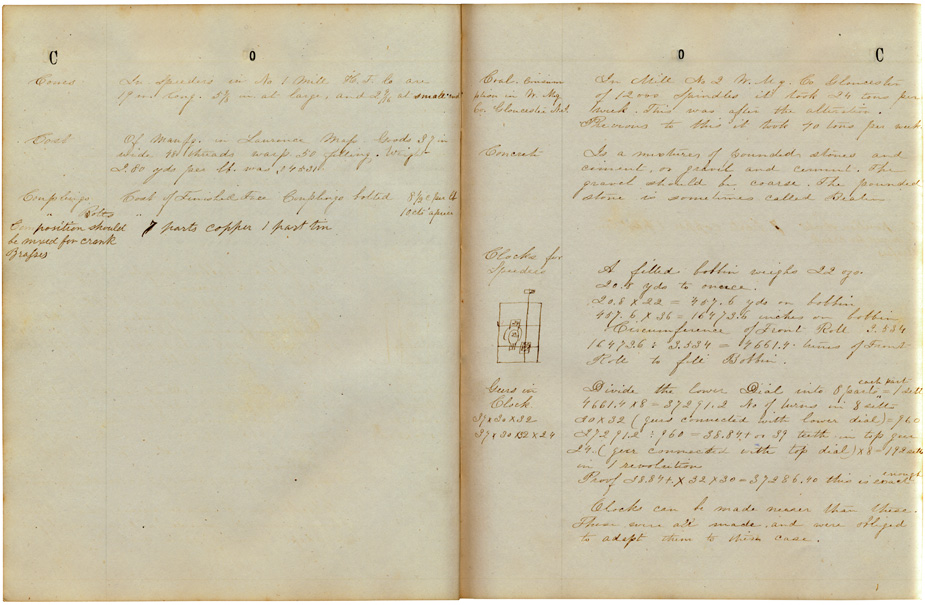 C O
Cones In Speeders in No 1 Mill H. F. Co are
19 in long. 5 5/8 in at large, and 2 3/16 at small end
Cost Of Manfg. in Lawrence Mass. Goods 37 in
wide 44 threads warp 50 filling. Weight
2.80 yds per lb. was .2453
Couplings Cost of Finished Face Couplings bolted
10 cts apiece
Composition should 7 parts copper 1 part tin
be mixed for crank
Brasses
O C
Coal. Consum
ption in W. Mfg.
Co. Gloucester
In Mill No 2 W. Mfg. Co Gloucester
of 12000 Spindles it took 24 tons per
week. This was after the alteration.
Previous to this it took 40 tons per week
Concrete Is a mixtures of pounded stones and
cement, or gravel and cement. The
gravel should be coarse. The pounded
stone is sometimes called Beaton
Clocks for
Speeders
A filled bobbin weighs 22 ozs.
20.8 yds to ounce.
20.8 x 22 = 457.6 yds on bobbin
457.6 x 36 = 16473.6 inches on bobbin
Circumference of Front Roll 3.534
16473.6 : 3.534 = 4661.4 turns of Front
Roll to fill Bobbin.
Gears in
Clock
39 x 30 x 32
37 x 30 x 32 x 24
Divide the lower Dial into 8 parts each part = 1 sett
4661.4 x 8 = 37291.2 No of turns in 8 setts
30 x 32 (gears connected with lower dial) = 960
37291.2 : 960 = 38.84+ or 39 teeth in top gear
24. (gear connected with top dial) x 8 = 192 setts
in 1 revolution
Proof 38.84+ x 32 x 30 = 37286.40 this is exact enough
Clocks can be made nearer than these.
These were all made, and were obliged
to adapt them to this case.